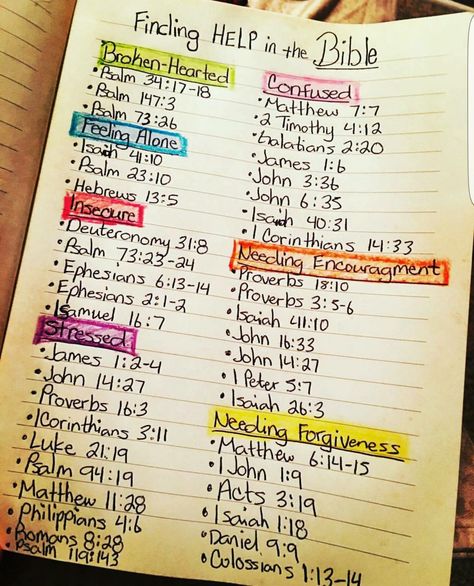 Finding HELP in the Bible
Broken-Hearted
• Psalm 34:17-18
• Psalm 147:3
• Psalm 73:26
Feeling Alone
• Isaiah 41:10
• Psalm 23:10
• Hebrews 13:5
Insecure
• Deuteronomy 31:8
• Psalm 73:23-24
• Ephesians 6:13-14
• Ephesians 2:1-2
• 1 Samuel 16:7
Stressed
• James 1:2-4
• John 14:27
• Proverbs 16:3
• 1 Corinthians 3:11
• Luke 21:19
• Psalm 94:19
• Matthew 11:28
• Philippians 4:6
• Romans 8:28
• Psalm 119:143
Confused
• Matthew 7:7
• 2 Timothy 4:12
• Galatians 2:20
• James 1:6
• John 3:36
• John 6:35
• Isaiah 40:31
• 1 Corinthians 14:33
Needing Encouragment
• Proverbs 18:10
• Proverbs 3:5-6
• Isaiah 41:10
• John 16:33
• John 14:27
• 1 Peter 5:7
• Isaiah 26:3
Needing Forgiveness
• Matthew 6:14-15
• 1 John 1:9
• Acts 3:19
• Isaiah 1:18
• Daniel 9:9
• Colossians 1:13-14